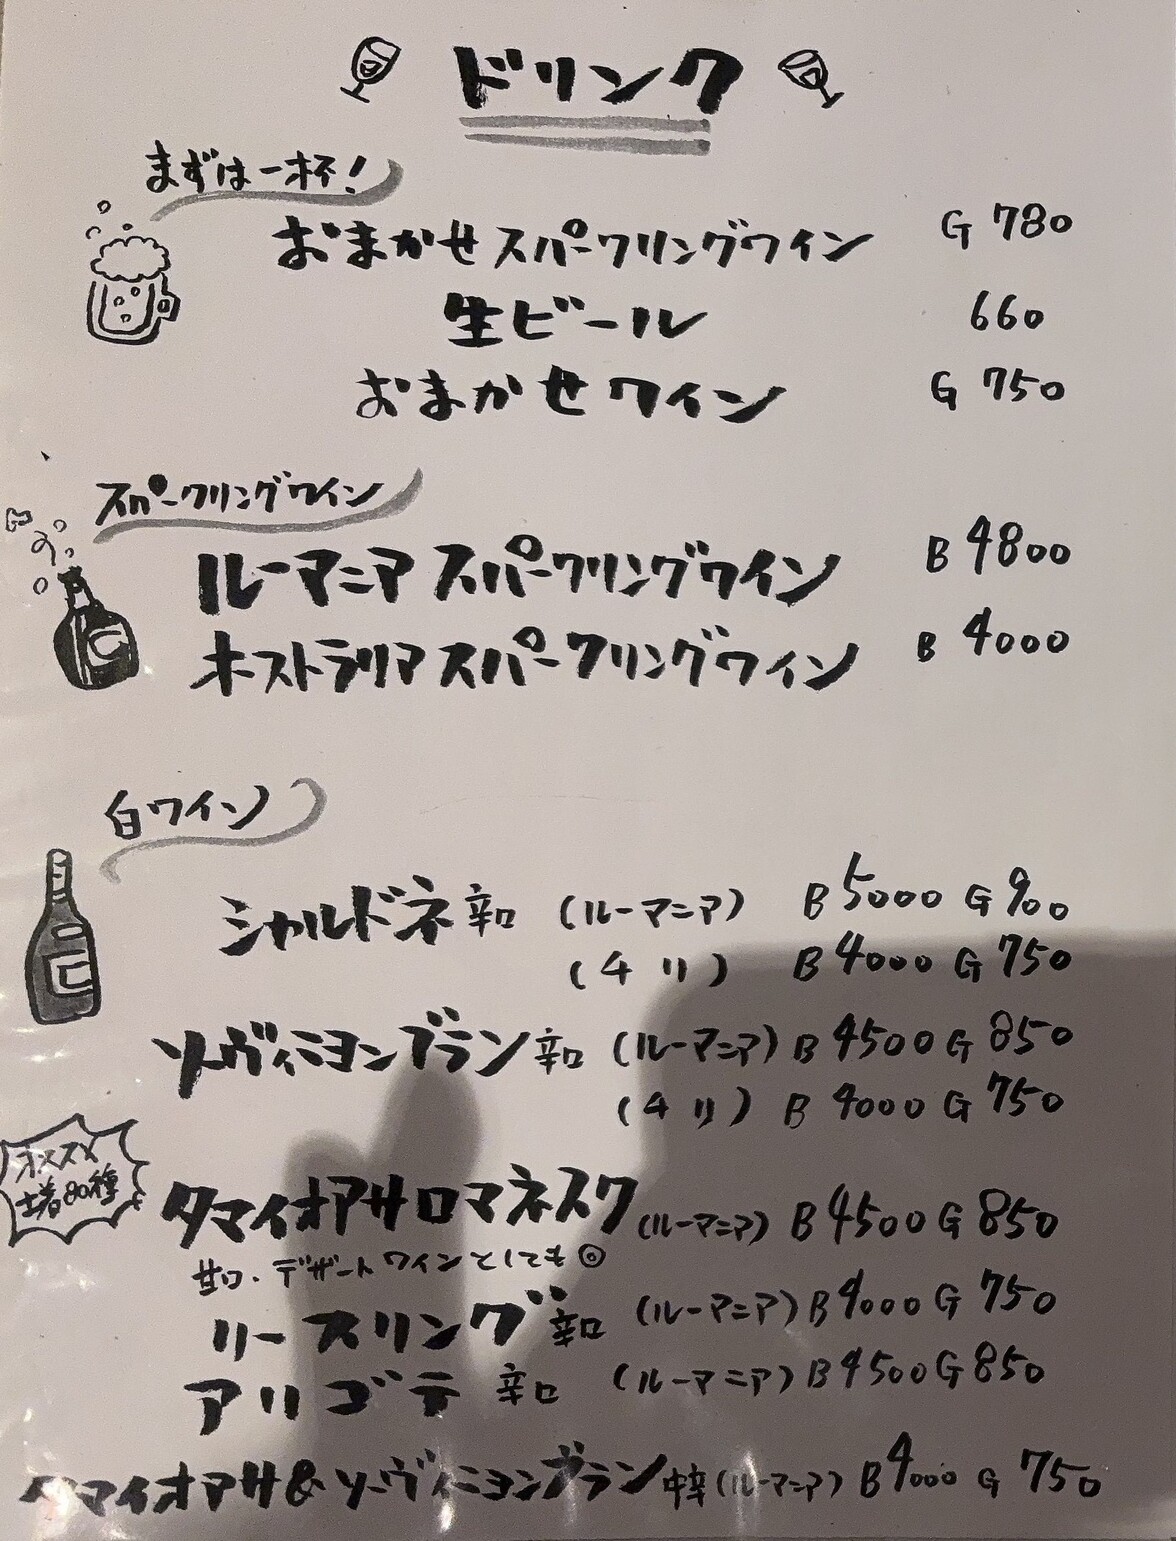 ドリンク
まずは一杯!
おまかせスパークリングワイン G 780
生ビール 660
おまかせワイン G 750
スパークリングワイン
ルーマニアスパークリングワイン B 4800
オーストラリアスパークリングワイン B 4000
白ワイン
シャルドネ 辛口 (ルーマニア) B 5000 G 900
(チリ) B 4000 G 750
ソーヴィニヨンブラン 辛口 (ルーマニア) B 4500 G 850
(チリ) B 4000 G 750
オススメ
土着80種
タマイオアサロマネスク (ルーマニア) B 4500 G 850
甘口・デザートワインとしても◎
リースリング 辛口 (ルーマニア) B 4000 G 750
アリゴテ 辛口 (ルーマニア) B 4500 G 850
タマイオアサ&ソーヴィニヨンブラン 中辛 (ルーマニア) B 4000 G 750